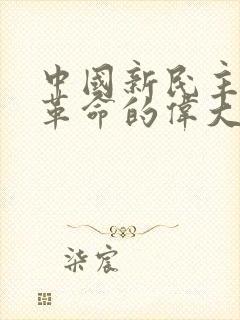 中國新民主
革命的偉大
柒宸